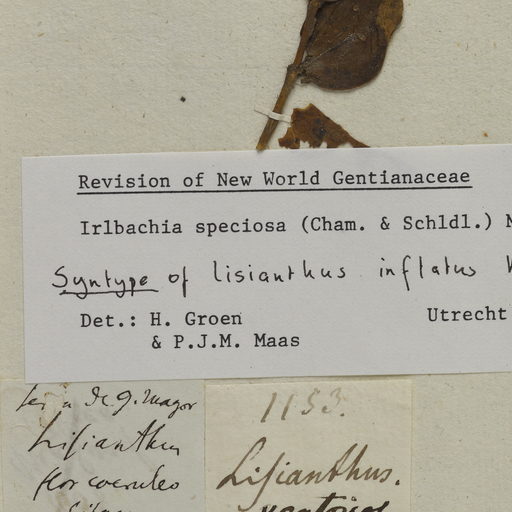 Revision of New World Gentianaceae
Irlbachia speciosa (Cham. & Schldl.)
Syntype of lisianthus inflatus
Det.: H. Groen
Utrecht
& P.J.M. Maas
1153.
Lisianthus
flor coeruleo
Lisianthus.